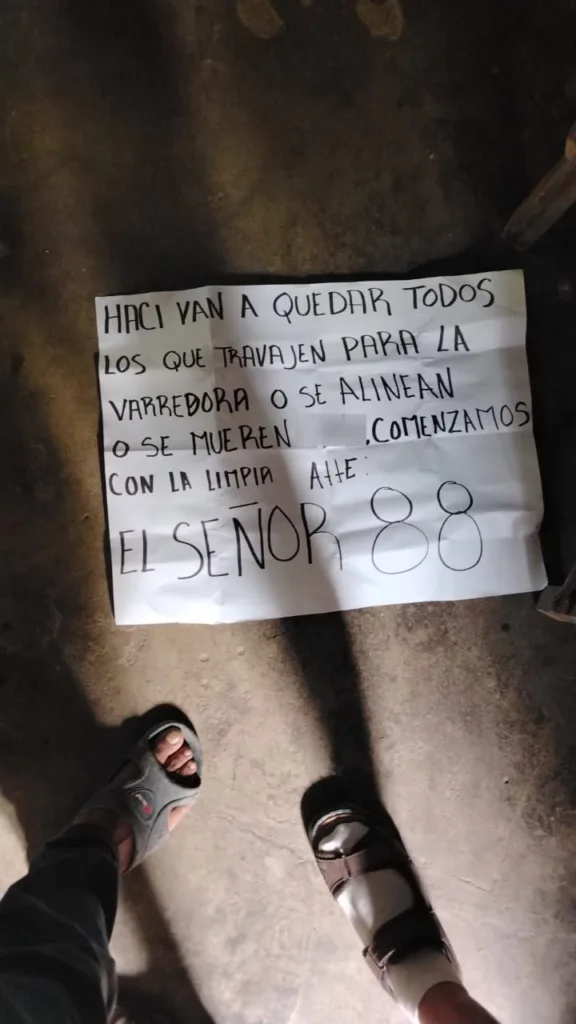 HACI VAN A QUEDAR TODOS
LOS QUE TRAVAJEN PARA LA
VARREDORA O SE ALINEAN
O SE MUEREN .COMENZAMOS
CON LA LIMPIA ATTE:
EL SEÑOR 88